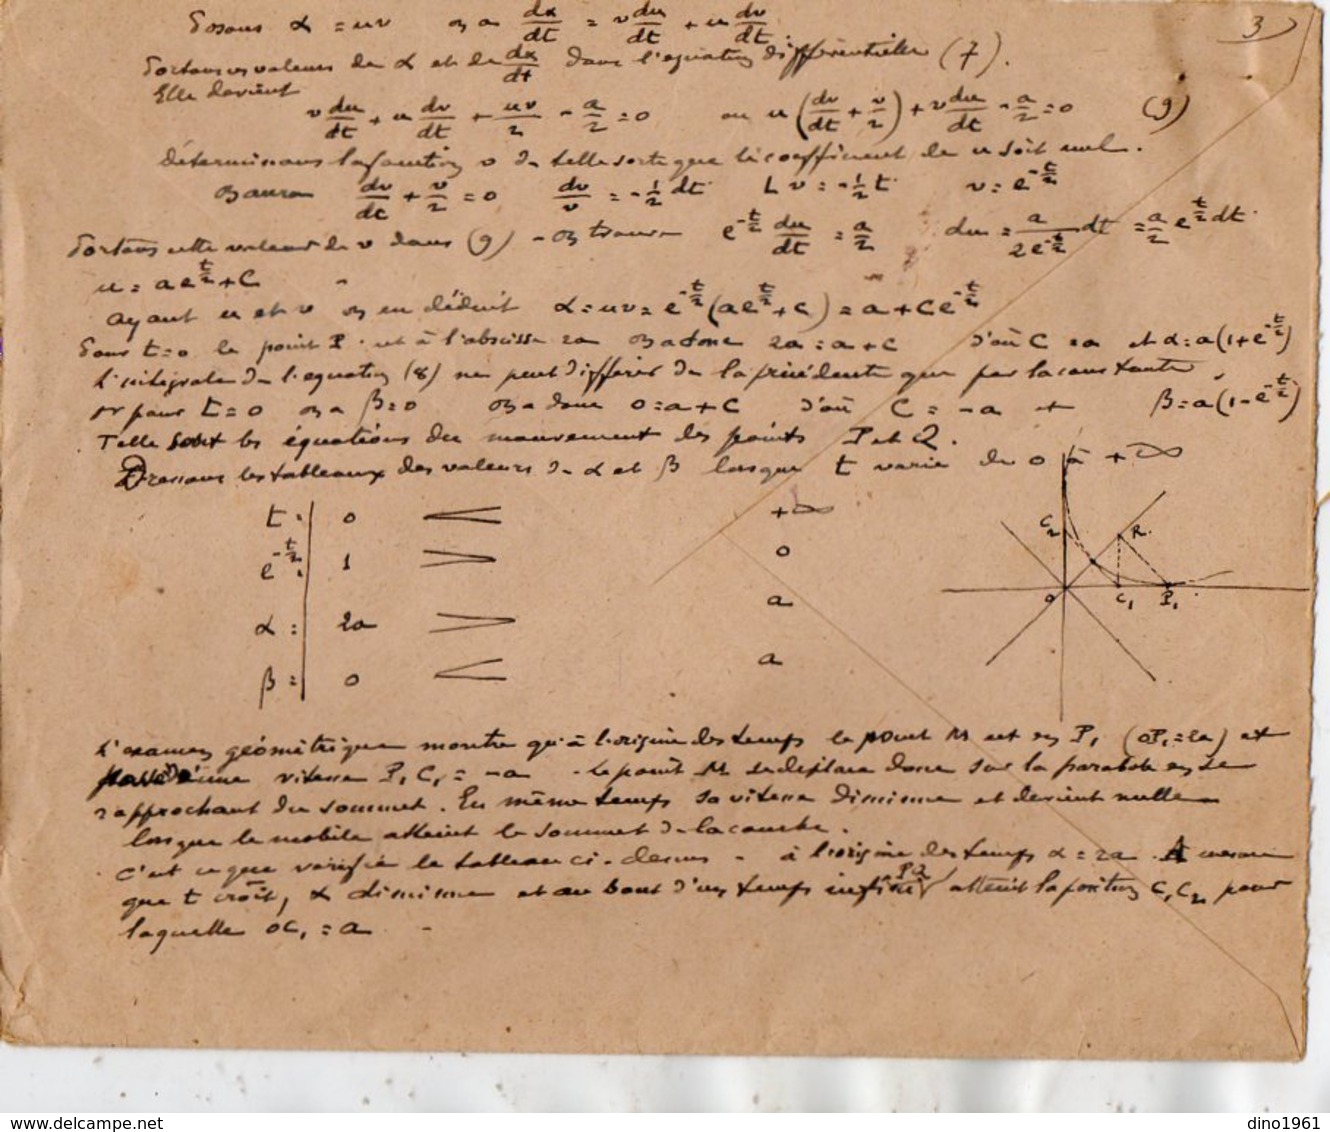 3
Posons α = uv on a dα/dt = v du/dt + u dv/dt.
Portons ces valeurs de α et de dα/dt dans l'équation différentielle (7).
Elle devient
v du/dt + u dv/dt + uv/2 - a/2 = 0 ou u (dv/dt + v/2) + v du/dt - a/2 = 0 (9)
déterminons la fonction v de telle sorte que le coefficient de u soit nul.
on aura dv/dt + v/2 = 0 dv/v = -1/2 dt L v = -1/2 t v = e^{-t/2}
Portons cette valeur de v dans (9) - on trouve e^{-t/2} du/dt = a/2 du = a/(2e^{-t/2}) dt = a/2 e^{t/2} dt
u = a e^{t/2} + C
ayant u et v on en déduit α = uv = e^{-t/2} (a e^{t/2} + C) = a + C e^{-t/2}
Pour t=0 le point P est à l'abscisse 2a on a donc 2a = a + C d'où C = a et α = a(1 + e^{-t/2})
L'intégrale de l'équation (8) ne peut différer de la précédente que par la constante
or pour t = 0 on a β = 0 on a donc 0 = a + C d'où C = -a et β = a(1 - e^{-t/2})
Telle sont les équations du mouvement des points P et Q.
Dressons les tableaux des valeurs de α et β lorsque t varie de 0 à + ∞
t = 0 < +∞
e^{-t/2} = 1 > 0
α = 2a > a
β = 0 < a
C2 R
O C1 P1
L'examen géométrique montre qu'à l'origine des temps le point M est en P1 (OP1 = 2a) et
possède une vitesse P1C1 = -a - le point M se déplace donc sur la parabole en se
rapprochant du sommet. En même temps sa vitesse diminue et devient nulle
lorsque le mobile atteint le sommet de la courbe.
C'est ce que vérifie le tableau ci-dessus - à l'origine des temps α = 2a. A mesure
que t croît, α diminue et au bout d'un temps infini PQ atteint la position C1C2 pour
laquelle OC1 = a -
dino1961